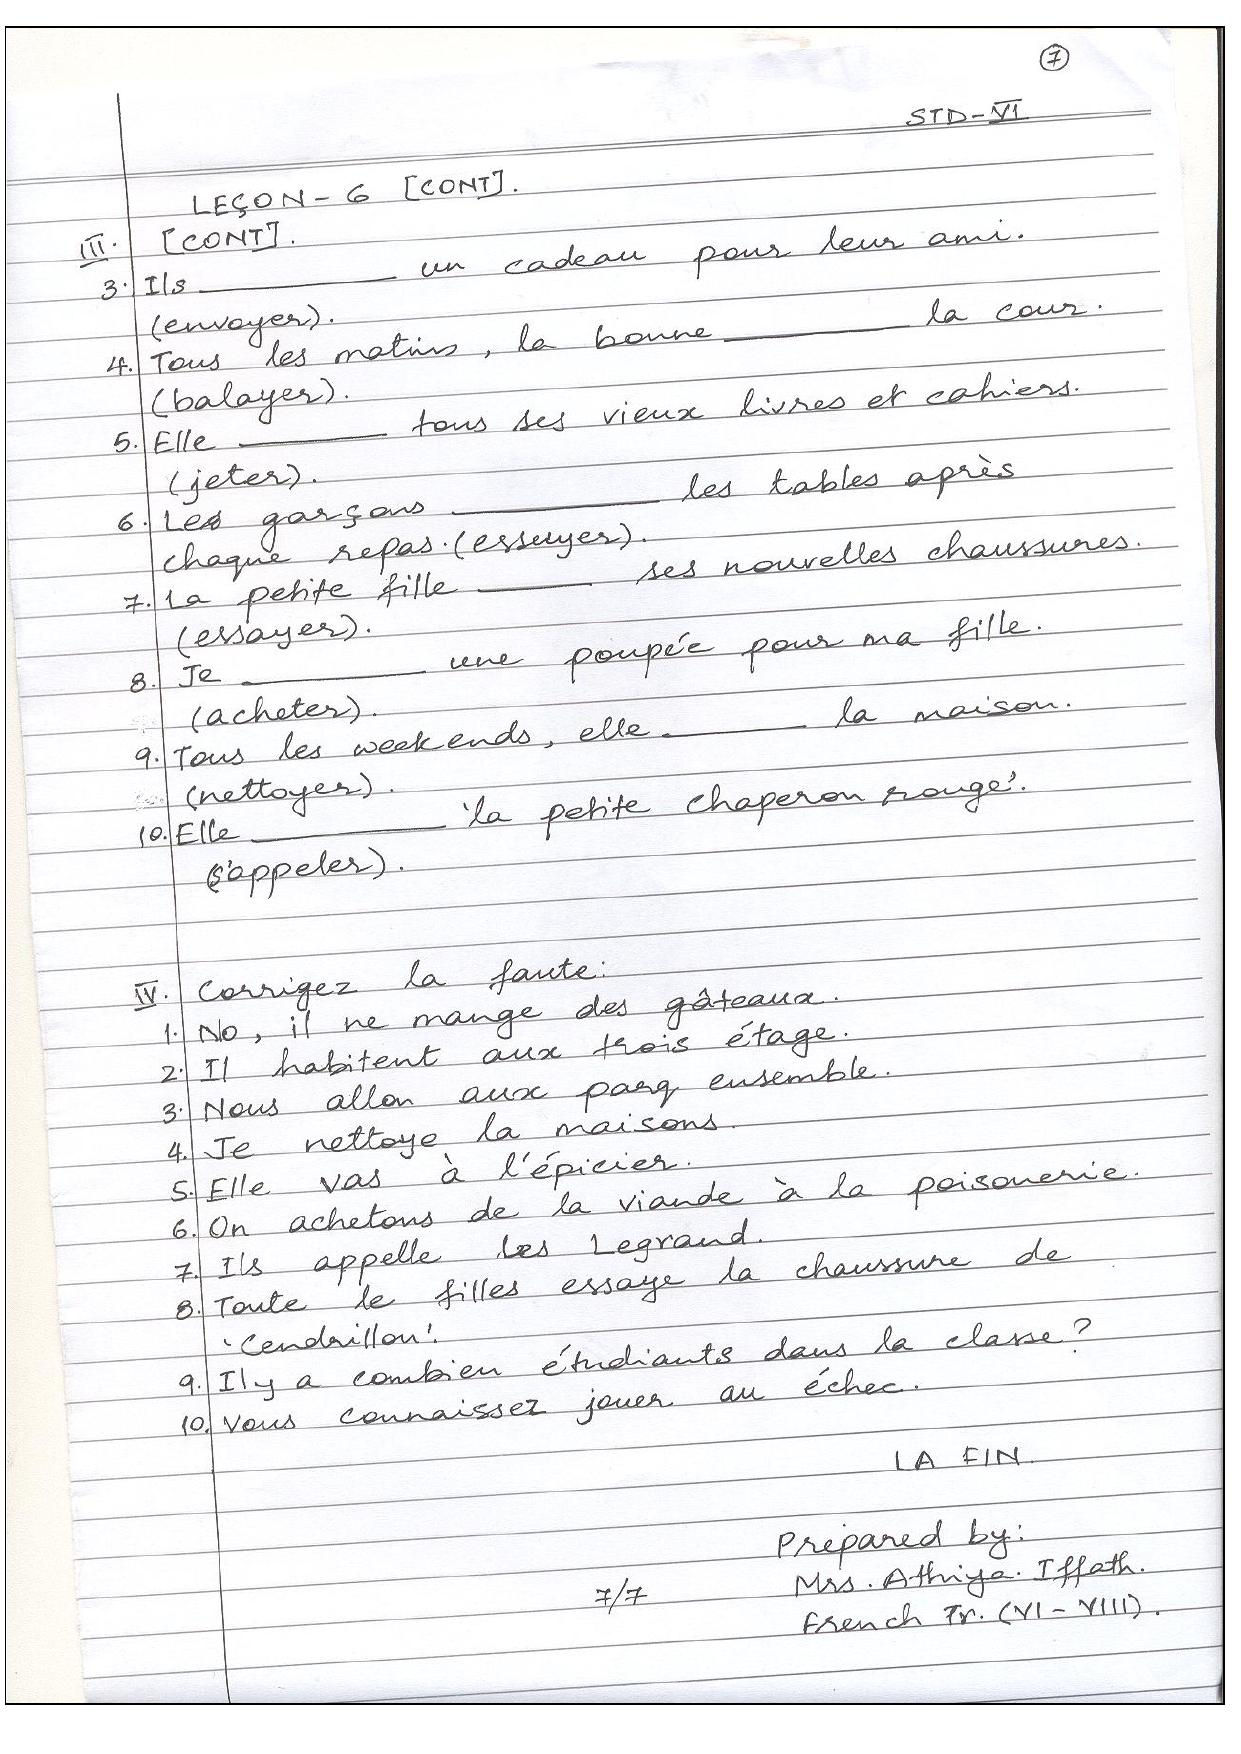 7
STD-VI
LEÇON-6 [CONT].
III. [CONT].
3. Ils ________ un cadeau pour leur ami.
(envoyer).
4. Tous les matins, la bonne ________ la cour.
(balayer).
5. Elle ________ tous ses vieux livres et cahiers.
(jeter).
6. Les garçons ________ les tables après
chaque repas. (essuyer).
7. La petite fille ________ ses nouvelles chaussures.
(essayer).
8. Je ________ une poupée pour ma fille.
(acheter).
9. Tous les weekends, elle ________ la maison.
(nettoyer).
10. Elle ________ 'la petite chaperon rouge'.
(s'appeler).
IV. Corrigez la faute:
1. No, il ne mange des gâteaux.
2. Il habitent aux trois étage.
3. Nous allon aux parq ensemble.
4. Je nettoye la maisons.
5. Elle vas à l'épicier.
6. On achetons de la viande à la poisonerie.
7. Ils appelle les Legrand.
8. Toute le filles essaye la chaussure de
'Cendrillon'.
9. Il y a combien étudiants dans la classe?
10. Vous connaissez jouer au échec.
LA FIN.
Prepared by:
7/7 Mrs. Athiya. Iffath.
French Tr. (VI-VIII).